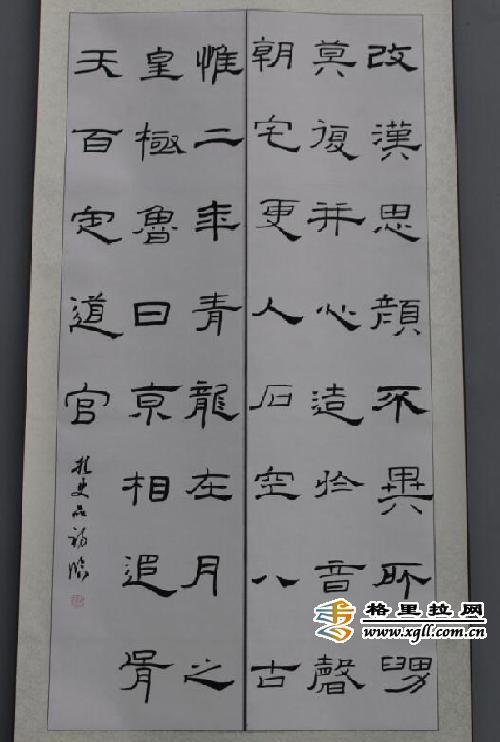 改漢思顏不異所舅
莫復并心造於音聲
朝宅更人石空八古
惟二年青龍在月之
皇極魯日京相追胥
天百定道官
臨
格里拉网
www.xgll.com.cn